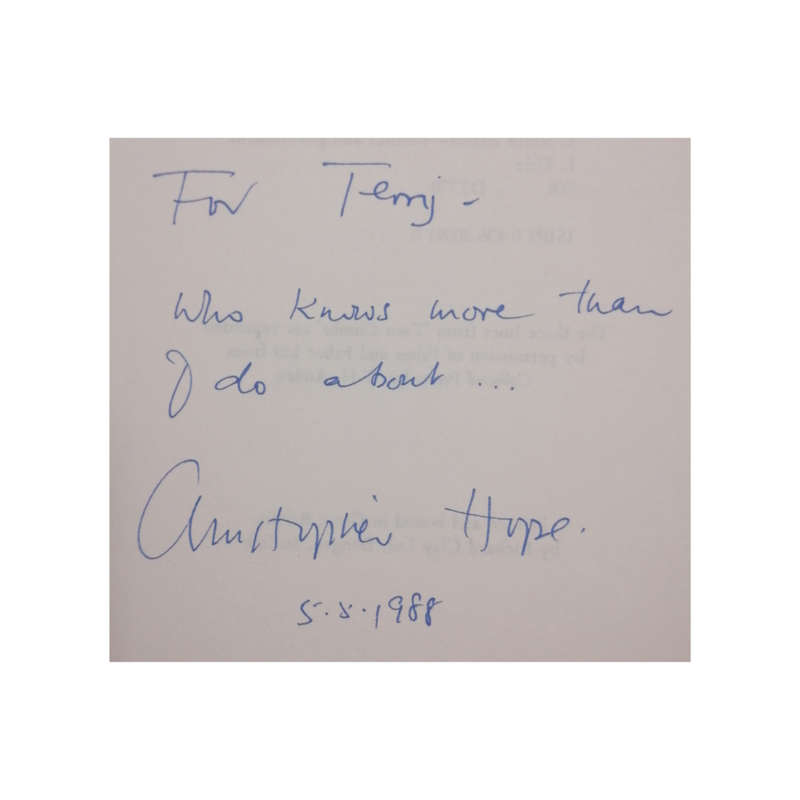 For Terry -
who knows more than
I do about...
Christopher Hope.
5.5.1988